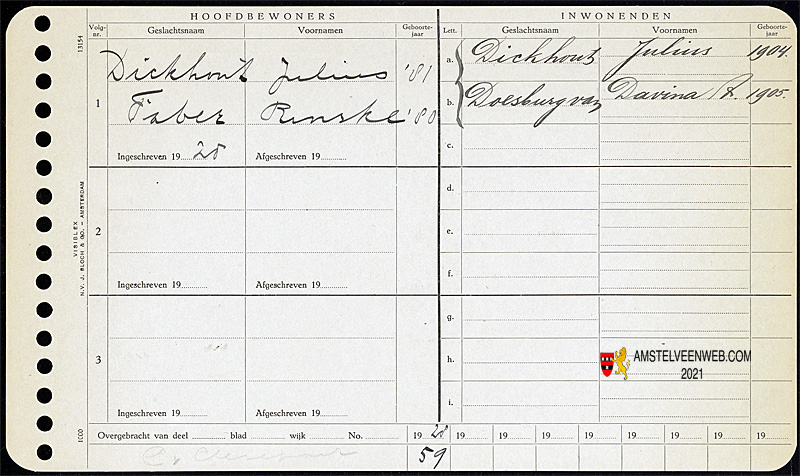 HOOFDBEWONERS
INWONENDEN
Volg-nr.
Geslachtsnaam
Voornamen
Geboorte-jaar
Lett.
Geslachtsnaam
Voornamen
Geboorte-jaar
13154
1
Dickhout Julius '81
Faber Rinske '80
Ingeschreven 19 28
Afgeschreven 19
a. Dickhout Julius 1904.
b. Doesburg van Davina A. 1905.
c.
2
Ingeschreven 19
Afgeschreven 19
d.
e.
f.
3
Ingeschreven 19
Afgeschreven 19
g.
h.
i.
VISIBLEX
N.V. J. BLOCH & CO. - AMSTERDAM
1000
AMSTELVEENWEB.COM
2021
Overgebracht van deel blad wijk No. 19 28 19 19 19 19 19 19 19 19
59